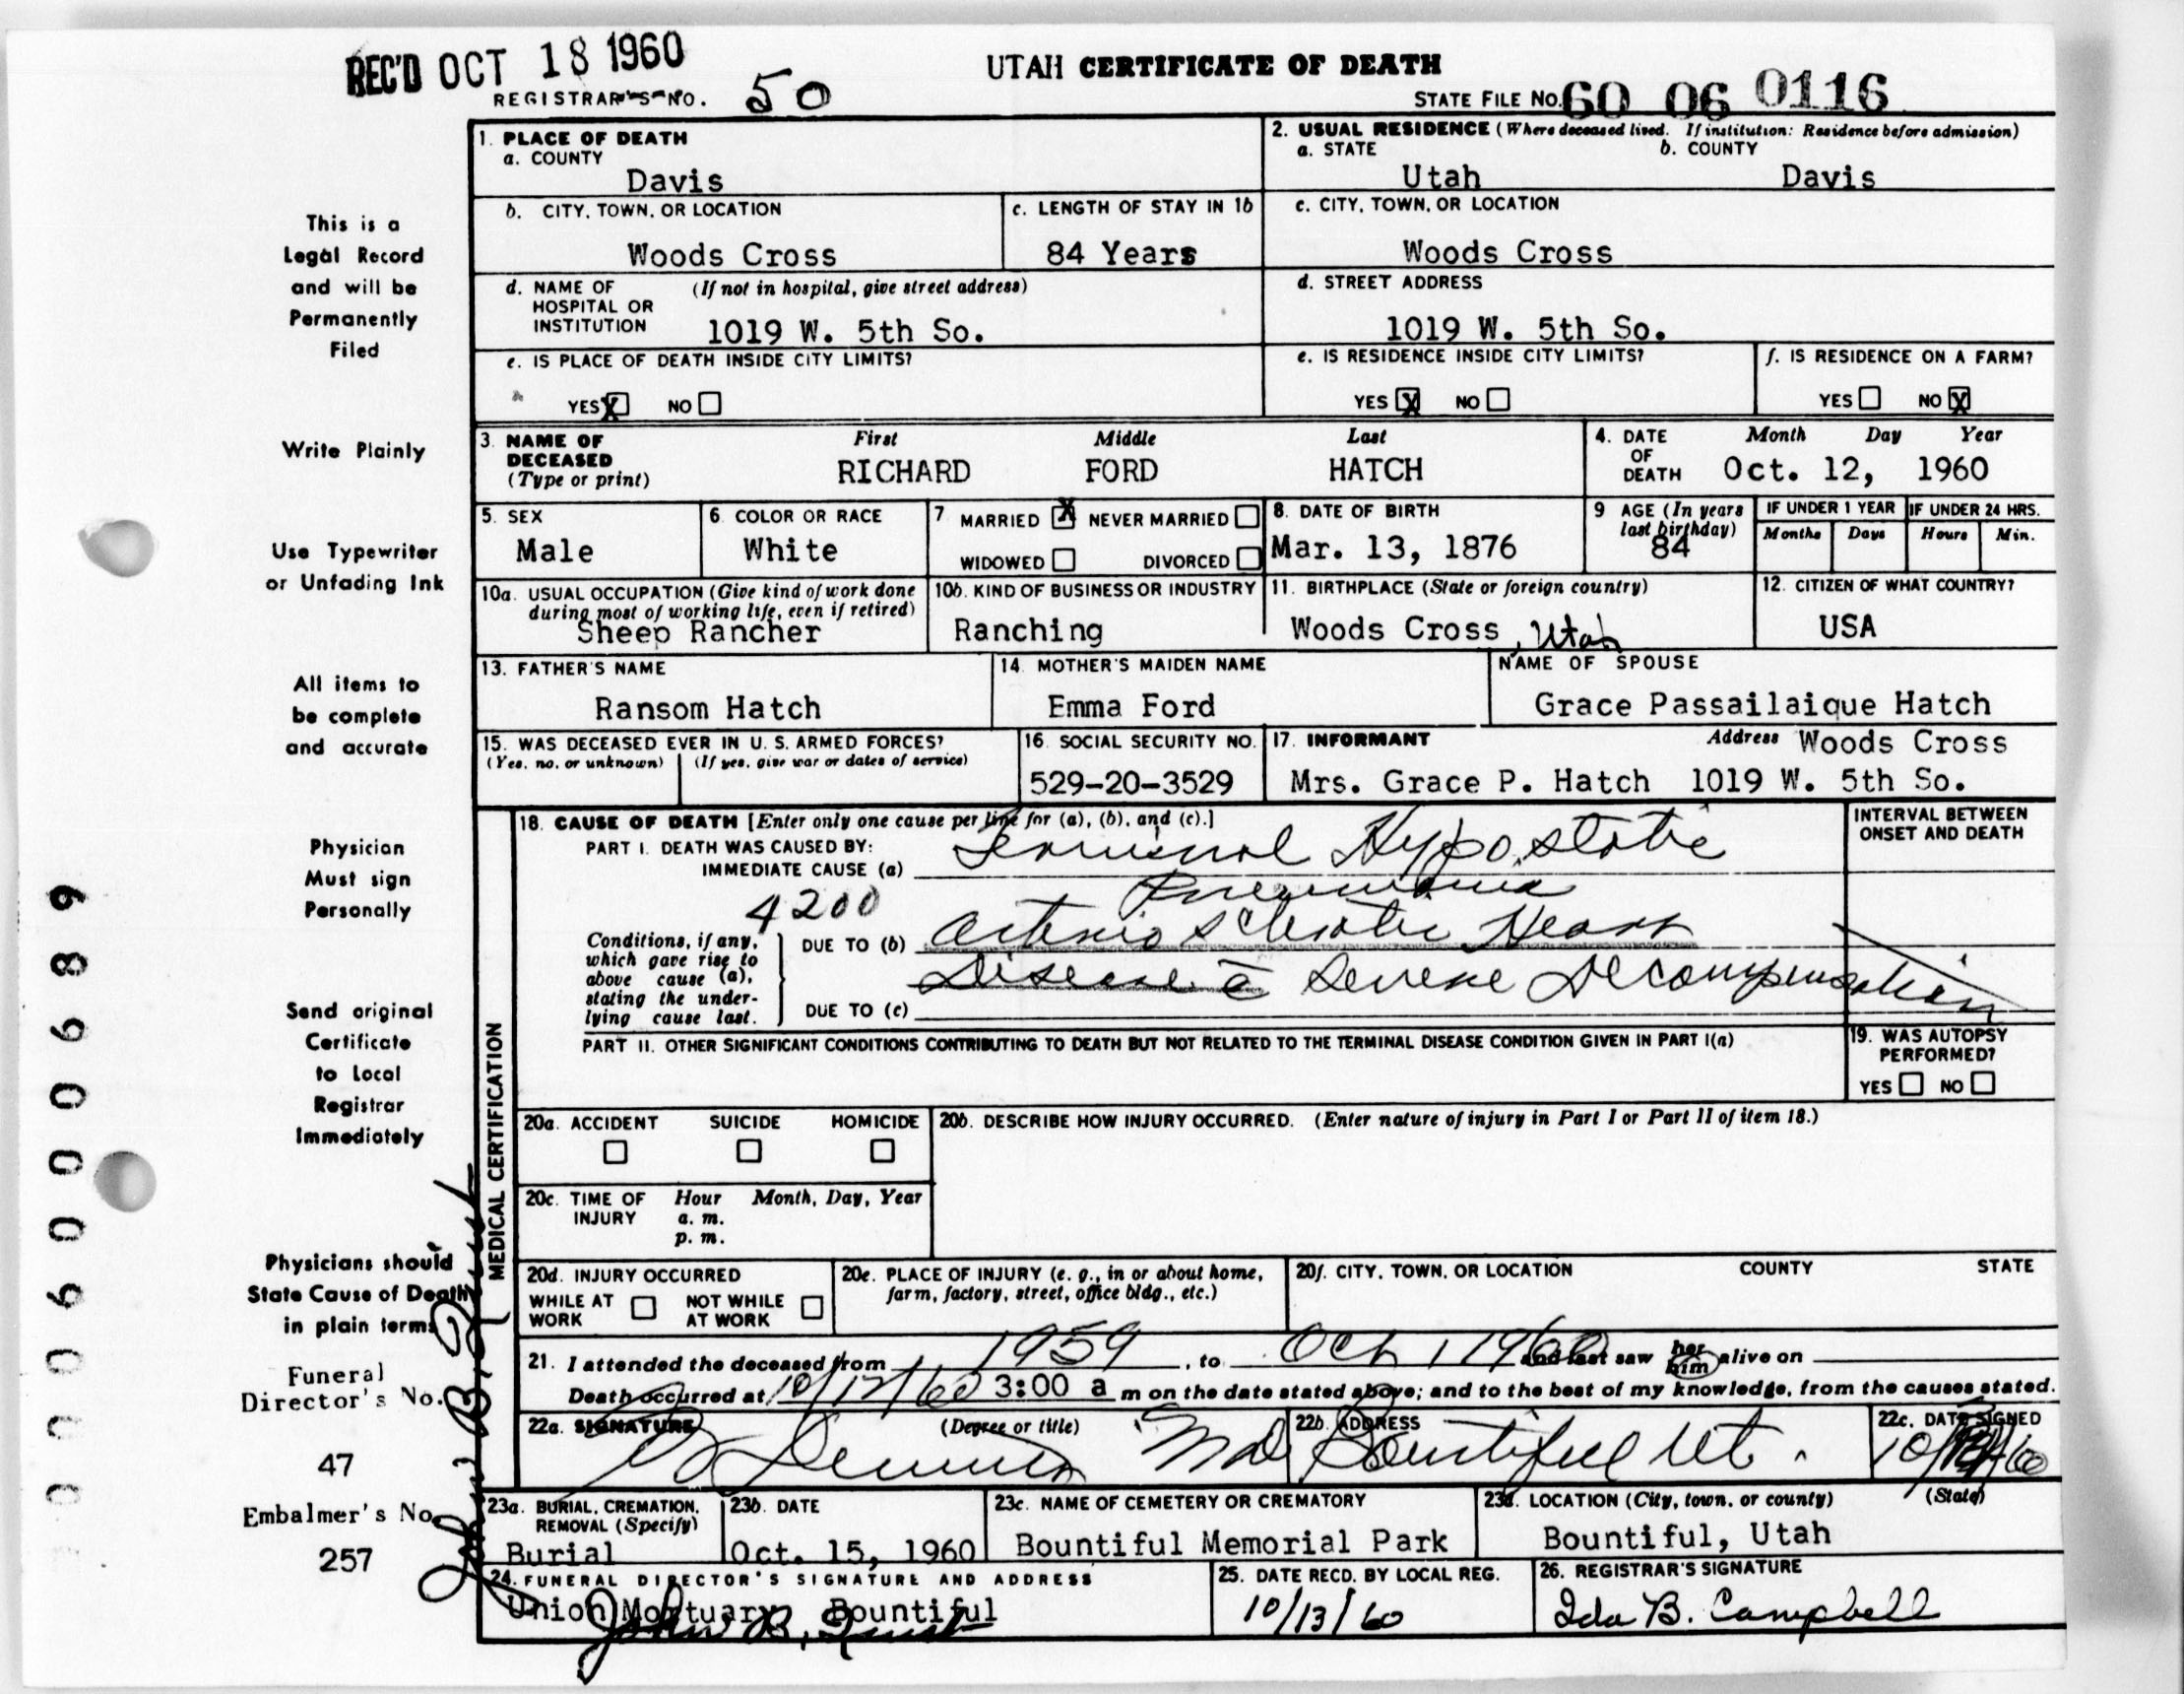 REC'D OCT 18 1960
UTAH CERTIFICATE OF DEATH
REGISTRAR'S NO. 50
STATE FILE NO. 60 06 0116
This is a
Legal Record
and will be
Permanently
Filed
Write Plainly
Use Typewriter
or Unfading Ink
All items to
be complete
and accurate
Physician
Must sign
Personally
Send original
Certificate
to Local
Registrar
Immediately
Physicians should
State Cause of Death
in plain terms
Funeral
Director's No.
47
Embalmer's No.
257
000600689
John B.
1. PLACE OF DEATH
a. COUNTY
Davis
2. USUAL RESIDENCE (Where deceased lived. If institution: Residence before admission)
a. STATE b. COUNTY
Utah Davis
b. CITY, TOWN, OR LOCATION
Woods Cross
c. LENGTH OF STAY IN 1b
84 Years
c. CITY, TOWN, OR LOCATION
Woods Cross
d. NAME OF (If not in hospital, give street address)
HOSPITAL OR
INSTITUTION 1019 W. 5th So.
d. STREET ADDRESS
1019 W. 5th So.
e. IS PLACE OF DEATH INSIDE CITY LIMITS?
YES X NO
e. IS RESIDENCE INSIDE CITY LIMITS?
YES X NO
f. IS RESIDENCE ON A FARM?
YES NO X
3. NAME OF DECEASED (Type or print)
First Middle Last
RICHARD FORD HATCH
4. DATE OF DEATH
Month Day Year
Oct. 12, 1960
5. SEX
Male
6. COLOR OR RACE
White
7 MARRIED X NEVER MARRIED
WIDOWED DIVORCED
8. DATE OF BIRTH
Mar. 13, 1876
9 AGE (In years last birthday)
84
IF UNDER 1 YEAR IF UNDER 24 HRS.
Months Days Hours Min.
10a. USUAL OCCUPATION (Give kind of work done
during most of working life, even if retired)
Sheep Rancher
10b. KIND OF BUSINESS OR INDUSTRY
Ranching
11. BIRTHPLACE (State or foreign country)
Woods Cross, Utah
12. CITIZEN OF WHAT COUNTRY?
USA
13. FATHER'S NAME
Ransom Hatch
14. MOTHER'S MAIDEN NAME
Emma Ford
NAME OF SPOUSE
Grace Passailaique Hatch
15. WAS DECEASED EVER IN U. S. ARMED FORCES?
(Yes, no, or unknown) (If yes, give war or dates of service)
16. SOCIAL SECURITY NO.
529-20-3529
17. INFORMANT Address Woods Cross
Mrs. Grace P. Hatch 1019 W. 5th So.
MEDICAL CERTIFICATION
18. CAUSE OF DEATH [Enter only one cause per line for (a), (b), and (c).]
INTERVAL BETWEEN
ONSET AND DEATH
PART I. DEATH WAS CAUSED BY:
IMMEDIATE CAUSE (a) Terminal Hypostatic
Pneumonia
4200
Conditions, if any,
which gave rise to
above cause (a),
stating the under-
lying cause last.
DUE TO (b) Arterio sclerotic Heart
Disease c̄ Severe Decompensation
DUE TO (c)
PART II. OTHER SIGNIFICANT CONDITIONS CONTRIBUTING TO DEATH BUT NOT RELATED TO THE TERMINAL DISEASE CONDITION GIVEN IN PART I(a)
19. WAS AUTOPSY
PERFORMED?
YES NO
20a. ACCIDENT SUICIDE HOMICIDE
20b. DESCRIBE HOW INJURY OCCURRED. (Enter nature of injury in Part I or Part II of item 18.)
20c. TIME OF INJURY Hour Month, Day, Year
a. m.
p. m.
20d. INJURY OCCURRED
WHILE AT WORK NOT WHILE AT WORK
20e. PLACE OF INJURY (e. g., in or about home,
farm, factory, street, office bldg., etc.)
20f. CITY, TOWN, OR LOCATION COUNTY STATE
21. I attended the deceased from 1959, to Oct 1 1960 and last saw her him alive on
Death occurred at 10/12/60 3:00 a m on the date stated above; and to the best of my knowledge, from the causes stated.
22a. SIGNATURE (Degree or title)
MD
22b. ADDRESS
Bountiful Ut.
22c. DATE SIGNED
23a. BURIAL, CREMATION,
REMOVAL (Specify)
Burial
23b. DATE
Oct. 15, 1960
23c. NAME OF CEMETERY OR CREMATORY
Bountiful Memorial Park
23d. LOCATION (City, town, or county) (State)
Bountiful, Utah
24. FUNERAL DIRECTOR'S SIGNATURE AND ADDRESS
Union Mortuary Bountiful
John B.
25. DATE RECD. BY LOCAL REG.
10/13/60
26. REGISTRAR'S SIGNATURE
Ida B. Campbell